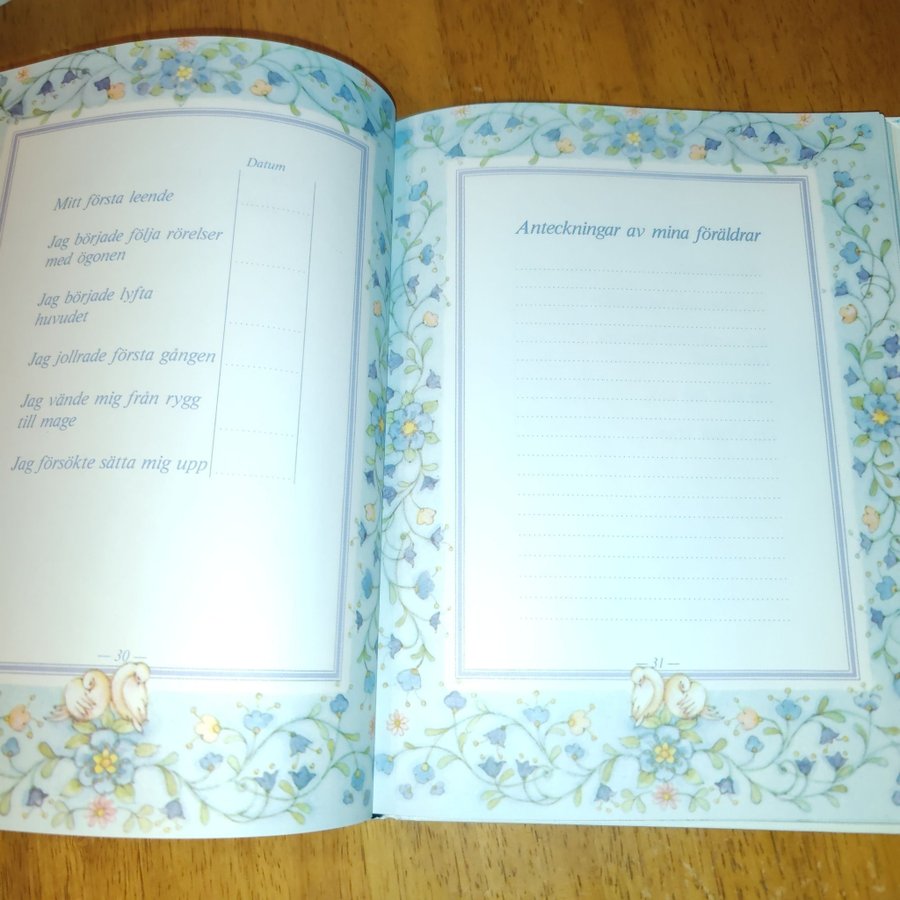 Datum
Mitt första leende
Jag började följa rörelser
med ögonen
Jag började lyfta
huvudet
Jag jollrade första gången
Jag vände mig från rygg
till mage
Jag försökte sätta mig upp
— 30 —
Anteckningar av mina föräldrar
— 31 —